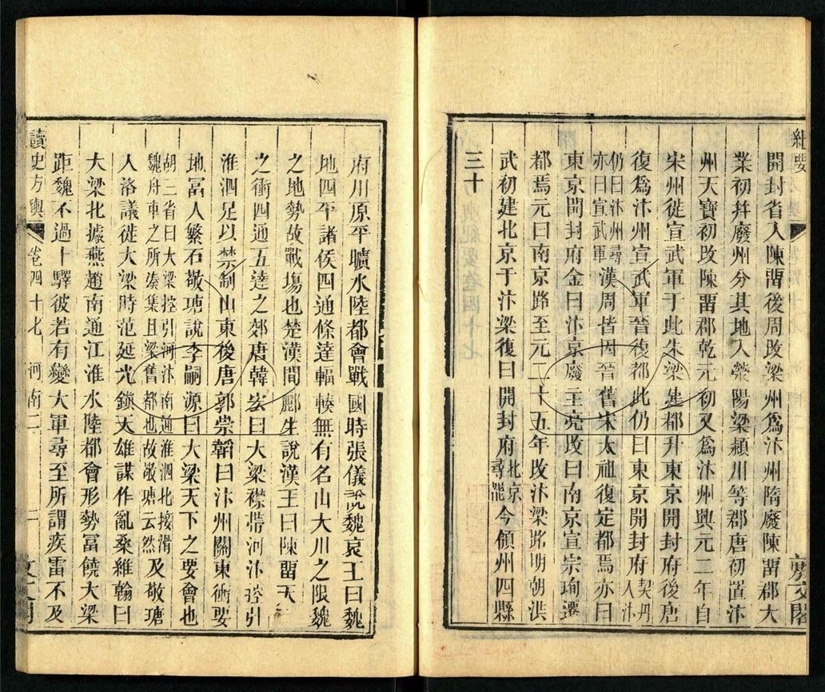 紀要
開封省入陳畱後周改梁州爲汴州隋廢陳畱郡大
業初幷廢州分其地入滎陽梁潁川等郡唐初置汴
州天寶初改陳畱郡乾元初又爲汴州興元二年自
宋州徙宣武軍于此朱梁建都升東京開封府後唐
復爲汴州宣武軍晉復都此仍曰東京開封府契丹入汴
仍曰汴州尋亦曰宣武軍漢周皆因晉舊宋太祖復定都焉亦曰
東京開封府金曰汴京廢主亮改曰南京宣宗珣遷
都焉元曰南京路至元二十五年改汴梁路明朝洪
武初建北京于汴梁復曰開封府北京尋罷今領州四縣
三十
府川原平曠水陸都會戰國時張儀說魏哀王曰魏
地四平諸侯四通條達輻輳無有名山大川之限魏
之地勢故戰場也楚漢間酈生說漢王曰陳畱天
之衝四通五達之郊唐韓宏曰大梁襟帶河汴控引
淮泗足以禁制山東後唐郭崇韜曰汴州關東衝要
地富人繁石敬瑭說李嗣源曰大梁天下之要會也
胡三省曰大梁控引河汴南通淮泗北接滑魏舟車之所湊集且梁舊都也故敬瑭云然及敬瑭
入洛議徙大梁時范延光鎮天雄謀作亂桑維翰曰
大梁北據燕趙南通江淮水陸都會形勢富饒大梁
距魏不過十驛彼若有變大軍尋至所謂疾雷不及
讀史方輿 卷四十七 河南二 二